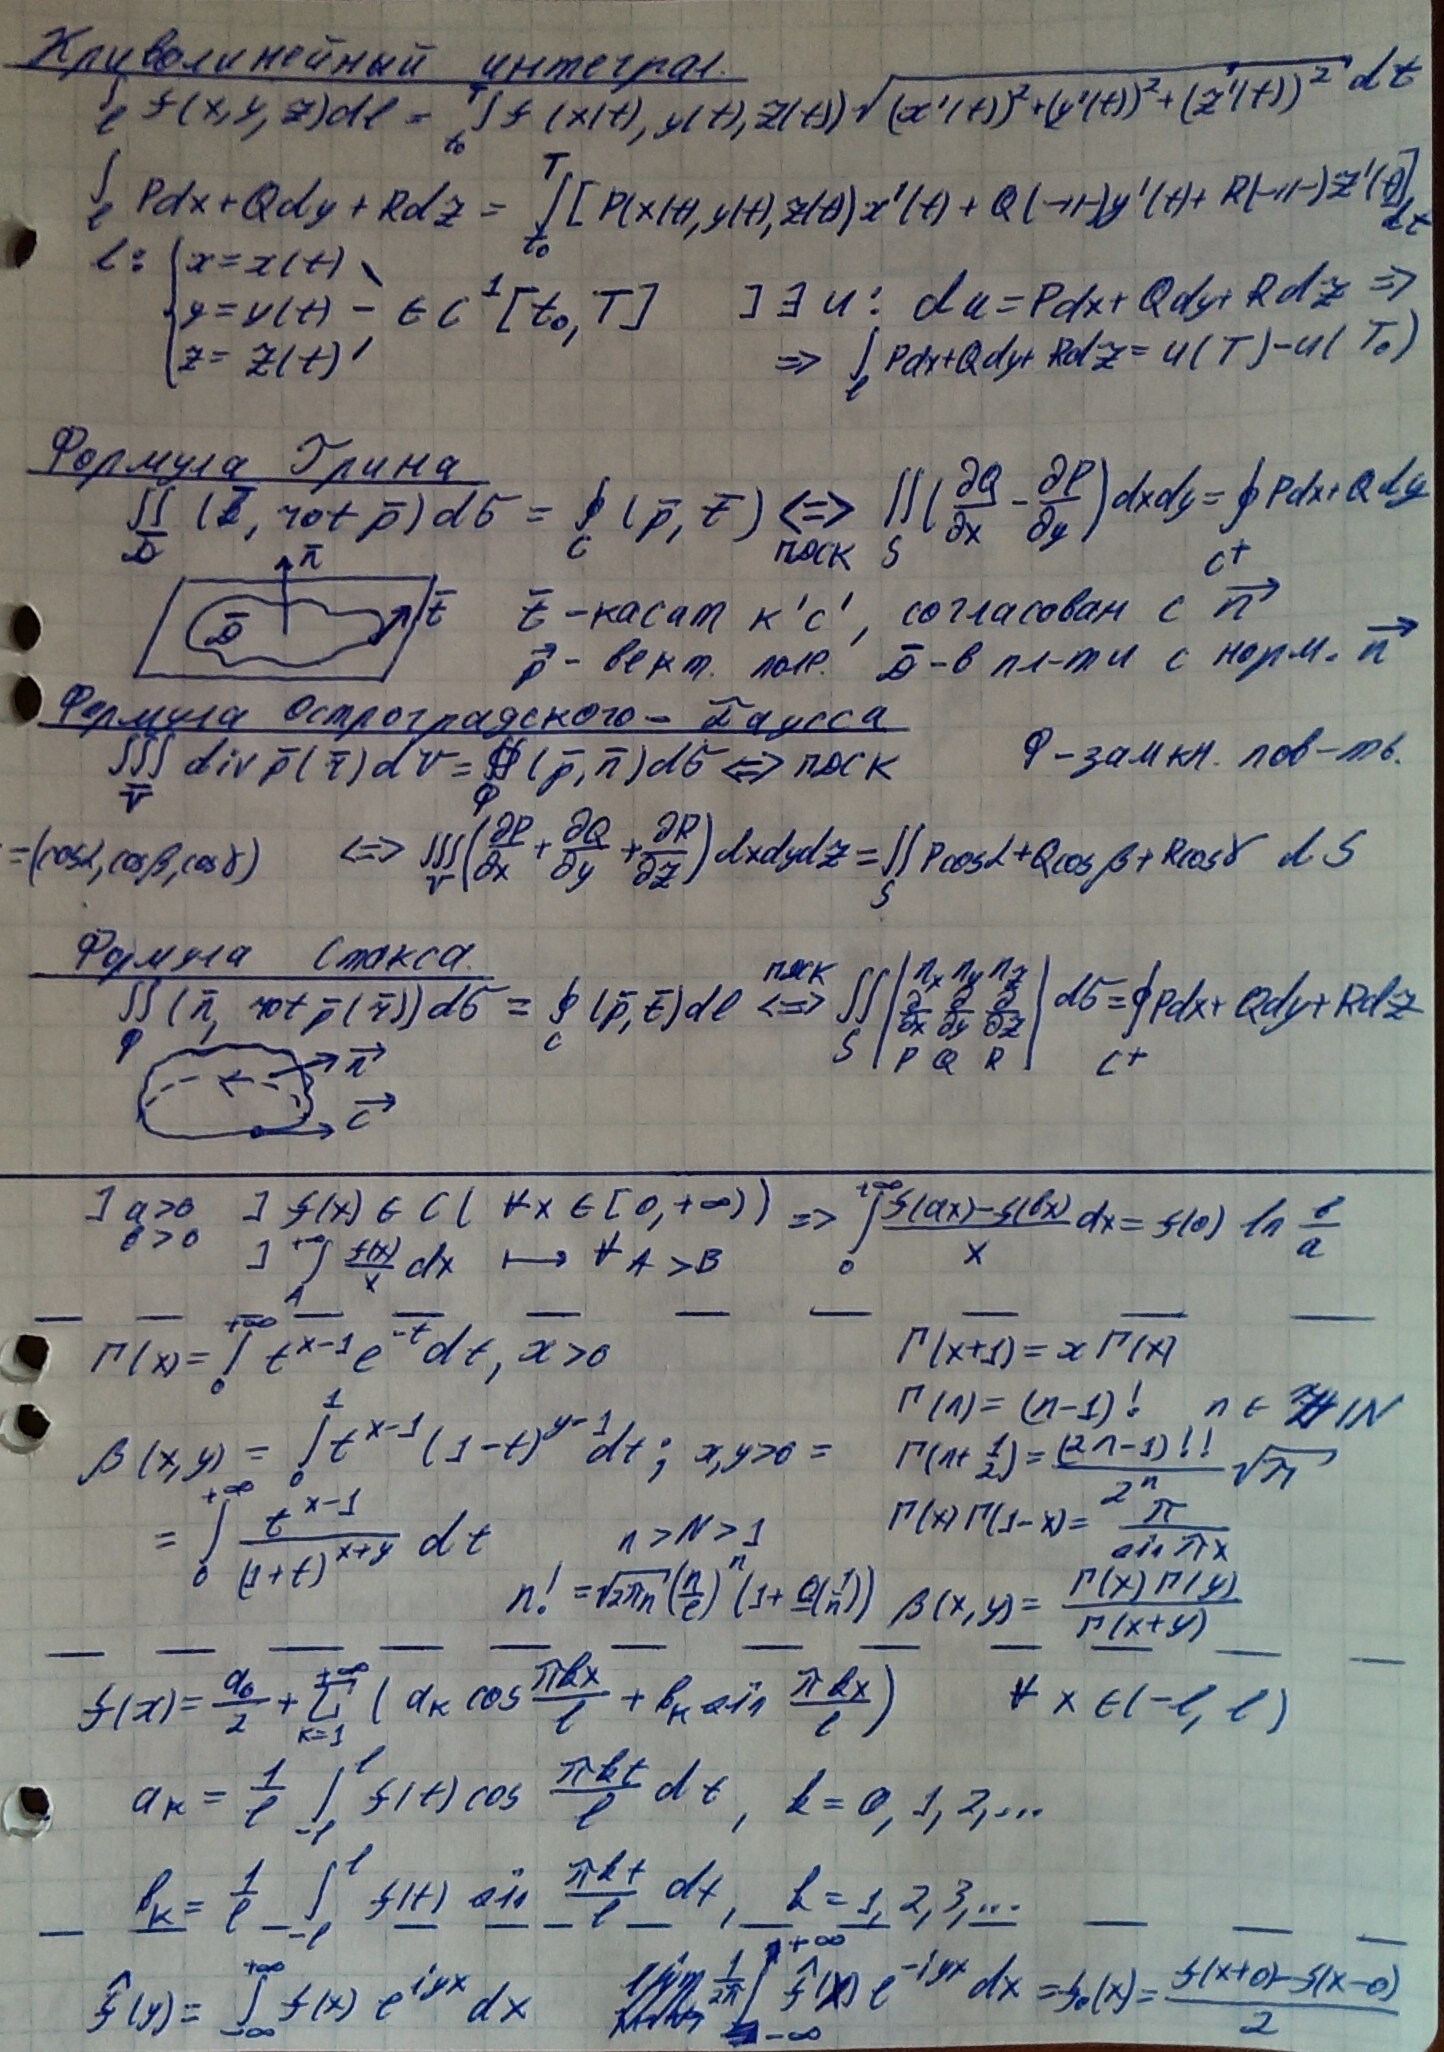 Криволинейный интеграл.
∫_l f(x,y,z)dl = ∫_{t₀}^{T} f(x(t),y(t),z(t))√((x'(t))²+(y'(t))²+(z'(t))²) dt
∫_l Pdx+Qdy+Rdz = ∫_{t₀}^{T} [P(x(t),y(t),z(t))x'(t)+Q(-11-)y'(t)+R(-11-)z'(t)]dt
l: { x=x(t)
y=y(t) - ∈ C¹[t₀,T] ] ∃ u: du=Pdx+Qdy+Rdz ⇒
z=z(t) ⇒ ∫_l Pdx+Qdy+Rdz=u(T)-u(T₀)
Формула Грина
∬_D̄ (k̄, rot p̄)dσ = ∮_c (p̄, t̄) ⇔ пдск ∬_S (∂Q/∂x - ∂P/∂y)dxdy=∮_{c+} Pdx+Qdy
n̄
D̄ t̄ t̄ -касат к 'c', согласован с n⃗
p⃗ - вект. поле. D̄ -в пл-ти с норм. n⃗
Формула Остроградского-Гаусса
∭_V̄ div p̄(r̄)dv=∯_Φ (p̄,n̄)dσ ⇔ пдск Φ-замкн. пов-ть.
=(cosα,cosβ,cosγ) ⇔ ∭_V (∂P/∂x+∂Q/∂y+∂R/∂z)dxdydz=∬_S Pcosα+Qcosβ+Rcosγ dS
Формула Стокса.
∬_Φ (n̄, rot p̄(r̄))dσ = ∮_c (p̄,t̄)dl ⇔ пдск ∬_S |n_x n_y n_z; ∂/∂x ∂/∂y ∂/∂z; P Q R| dσ=∮_{c+} Pdx+Qdy+Rdz
n⃗
c⃗
] a>0 ] f(x)∈C(∀x∈[0,+∞)) ⇒ ∫_0^{+∞} (f(ax)-f(bx))/x dx=f(0) ln b/a
b>0 ] ∫_A^{+∞} f(x)/x dx ↦ ∀A>B
Γ(x)=∫_0^{+∞} t^{x-1}e^{-t}dt, x>0 Γ(x+1)=xΓ(x)
Γ(n)=(n-1)! n∈ ℕ
β(x,y)=∫_0^1 t^{x-1}(1-t)^{y-1}dt; x,y>0 = Γ(n+1/2)=(2n-1)!!/2ⁿ √π
=∫_0^{+∞} t^{x-1}/(1+t)^{x+y} dt n>N>1 Γ(x)Γ(1-x)=π/sin πx
n!=√(2πn)(n/e)ⁿ(1+o(1/n)) β(x,y)=Γ(x)Γ(y)/Γ(x+y)
f(x)=a₀/2+∑_{k=1}^{+∞}(a_k cos πkx/l + b_k sin πkx/l) ∀x∈(-l, l)
a_k=1/l ∫_{-l}^{l} f(t)cos πkt/l dt, k=0,1,2,...
b_k=1/l ∫_{-l}^{l} f(t) sin πkt/l dt, k=1,2,3,...
f̂(y)=∫_{-∞}^{+∞} f(x)e^{iyx}dx 1/2π ∫_{-∞}^{+∞} f̂(x)e^{-iyx}dx=f₀(x)=(f(x+0)-f(x-0))/2